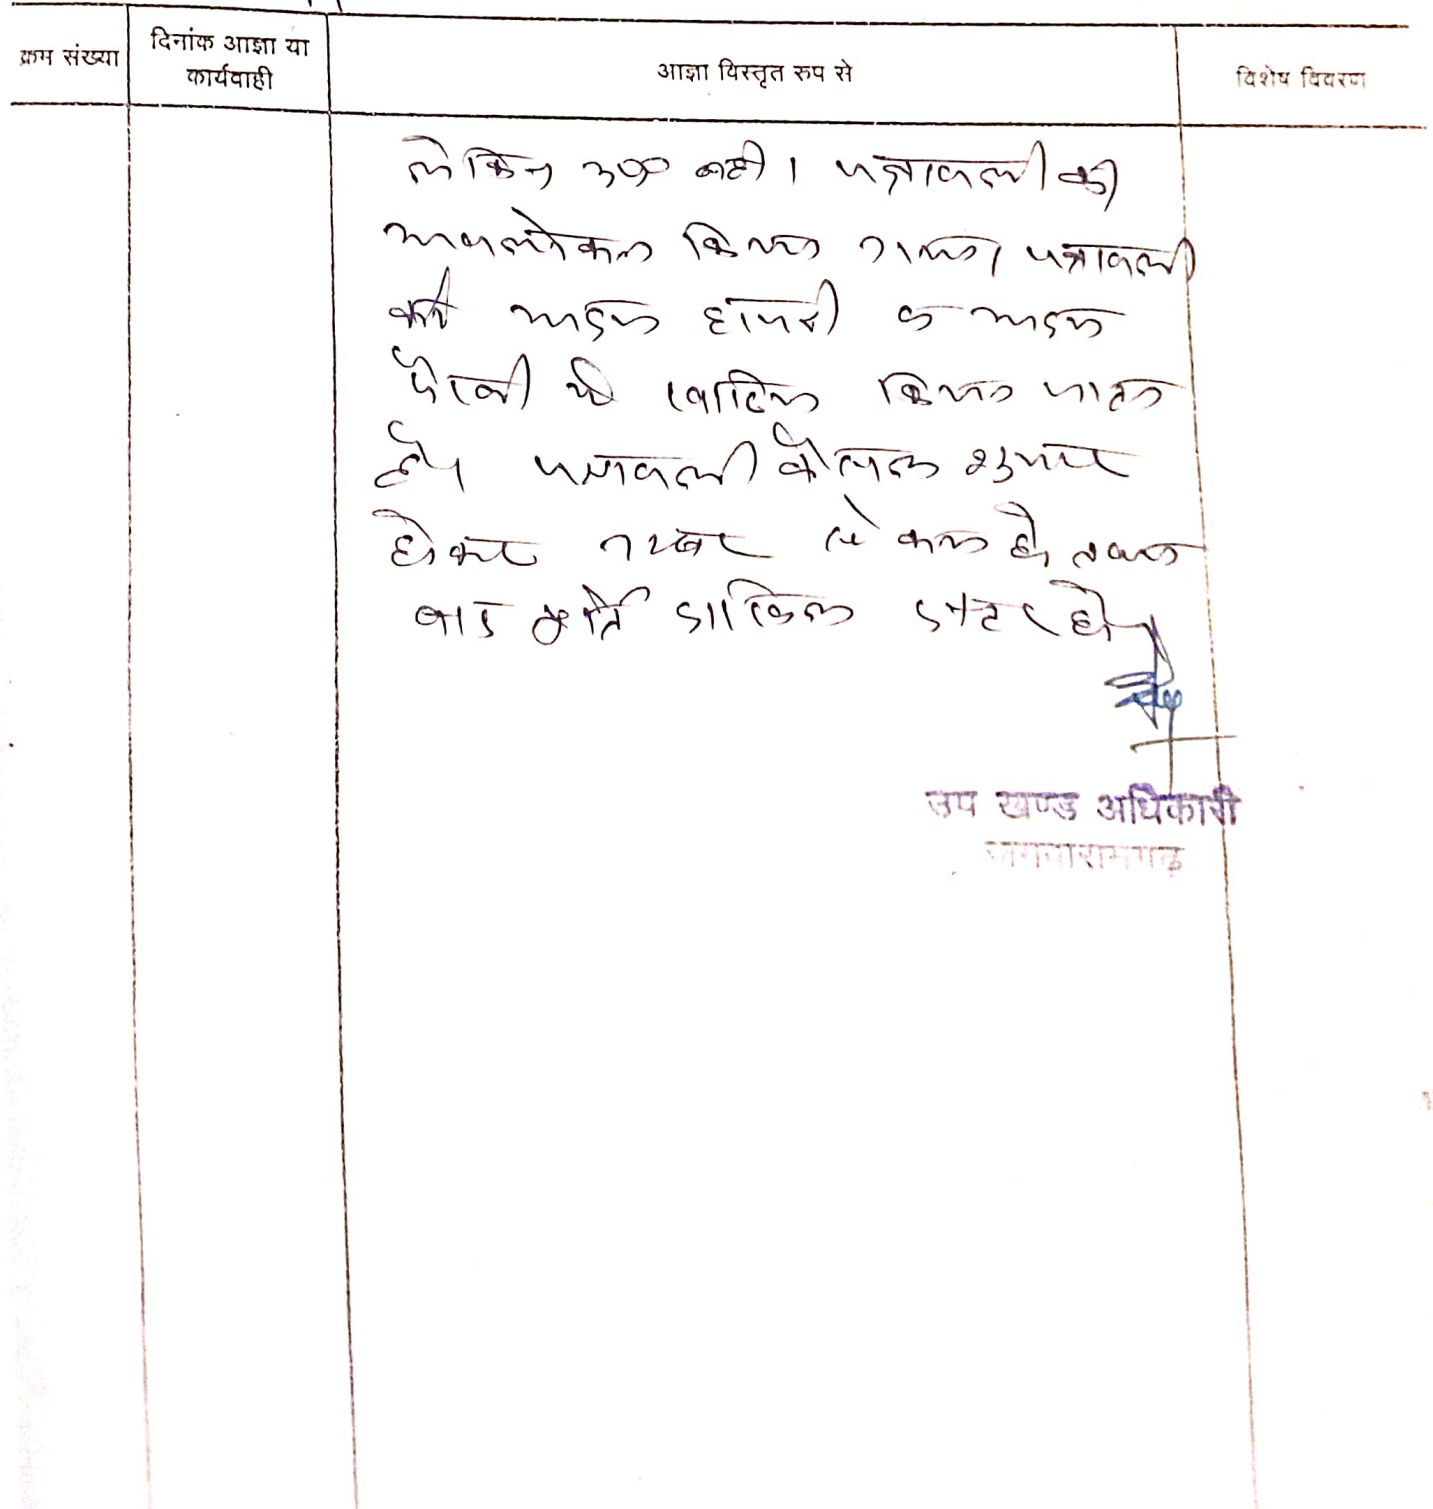 क्रम संख्या
दिनांक आज्ञा या
कार्यवाही
आज्ञा विस्तृत रुप से
विशेष विवरण
लेकिन उप० नही। पत्रावली का
अवलोकन किया गया। पत्रावली
को अदम हाजरी व अदम
पैरवी में खारिज किया जाता
है। पत्रावली फैसल शुमार
होकर नम्बर से कम हो
बाद पूर्ति दाखिल दफ्तर हो।
उप खण्ड अधिकारी
जमवारामगढ़